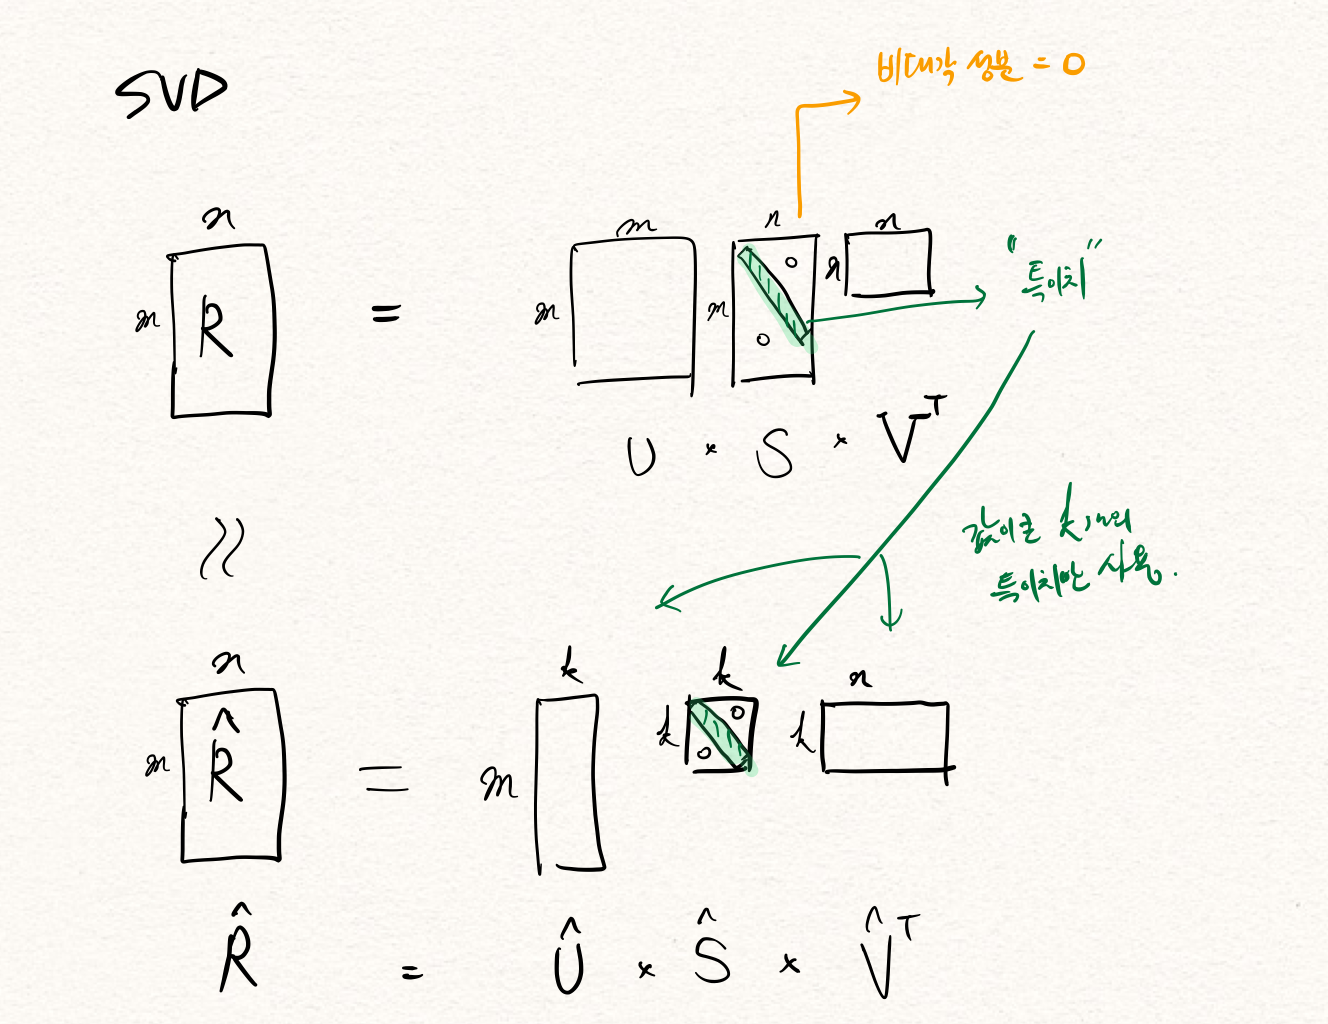 SVD
비대각 성분 = 0
n
m
R
=
m
m
n
m
0
0
n
n
"특이치"
U * S * Vᵀ
≈
값이 큰 k개의
특이치만 사용.
n
m
R̂
=
k
m
k
k
0
0
n
k
R̂ = Û * Ŝ * V̂ᵀ